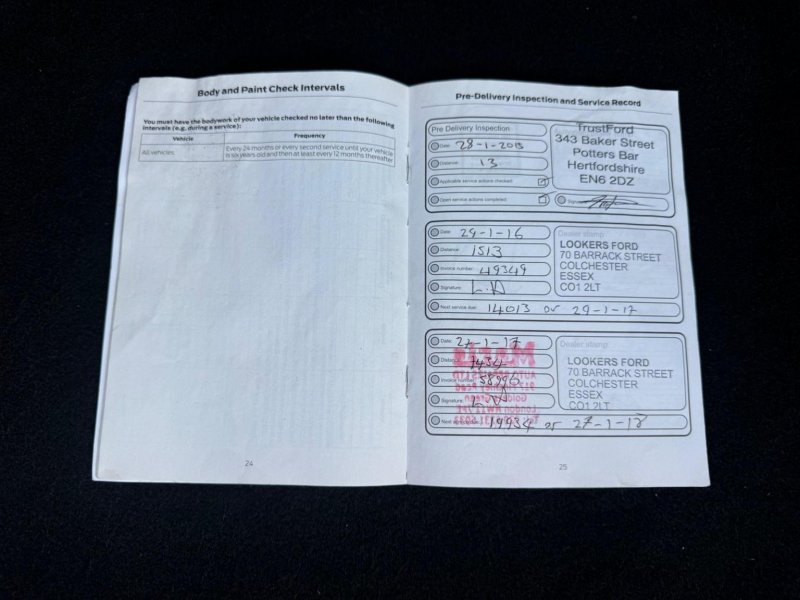 Body and Paint Check Intervals
You must have the bodywork of your vehicle checked no later than the following
intervals (e.g. during a service):
Vehicle Frequency
All vehicles. Every 24 months or every second service until your vehicle
is six years old and then at least every 12 months thereafter.
24
Pre-Delivery Inspection and Service Record
Pre Delivery Inspection
Date: 28-1-2015
Distance: 13
Applicable service actions checked:
Open service actions completed:
TrustFord
343 Baker Street
Potters Bar
Hertfordshire
EN6 2DZ
Date: 29-1-16
Distance: 1513
Invoice number: 49349
Signature:
Next service due: 14013 or 29-1-17
Dealer stamp:
LOOKERS FORD
70 BARRACK STREET
COLCHESTER
ESSEX
CO1 2LT
Date: 27-1-17
Distance: 7434
Invoice number: 58996
Signature:
Next service due: 19934 or 27-1-18
Dealer stamp:
LOOKERS FORD
70 BARRACK STREET
COLCHESTER
ESSEX
CO1 2LT
25